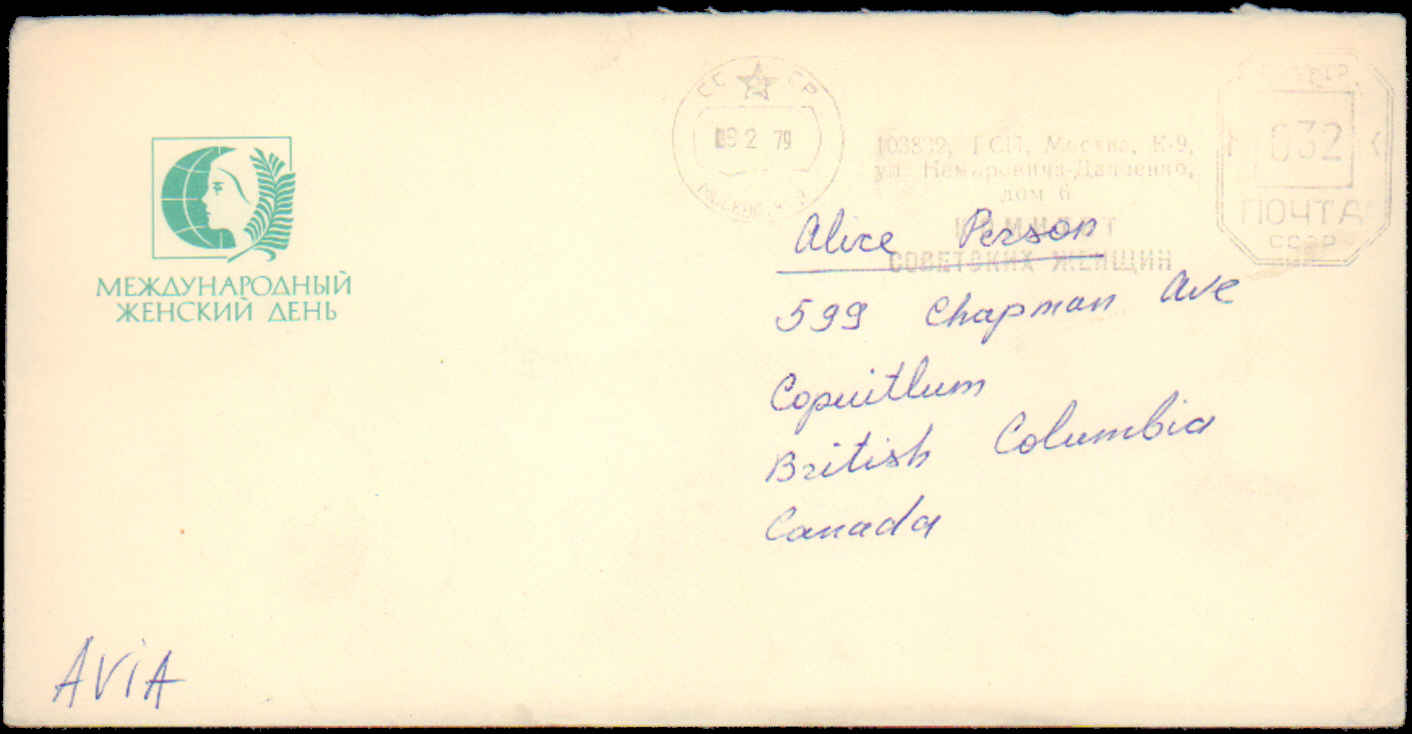 СССР
09 2 79
103832, ГСП, Москва, К-9,
ул. Немировича-Данченко,
дом 6
КОМИТЕТ
СОВЕТСКИХ ЖЕНЩИН
032
ПОЧТА
СССР
МЕЖДУНАРОДНЫЙ
ЖЕНСКИЙ ДЕНЬ
Alice Person
599 Chapman Ave
Copuitlum
British Columbia
Canada
AVIA